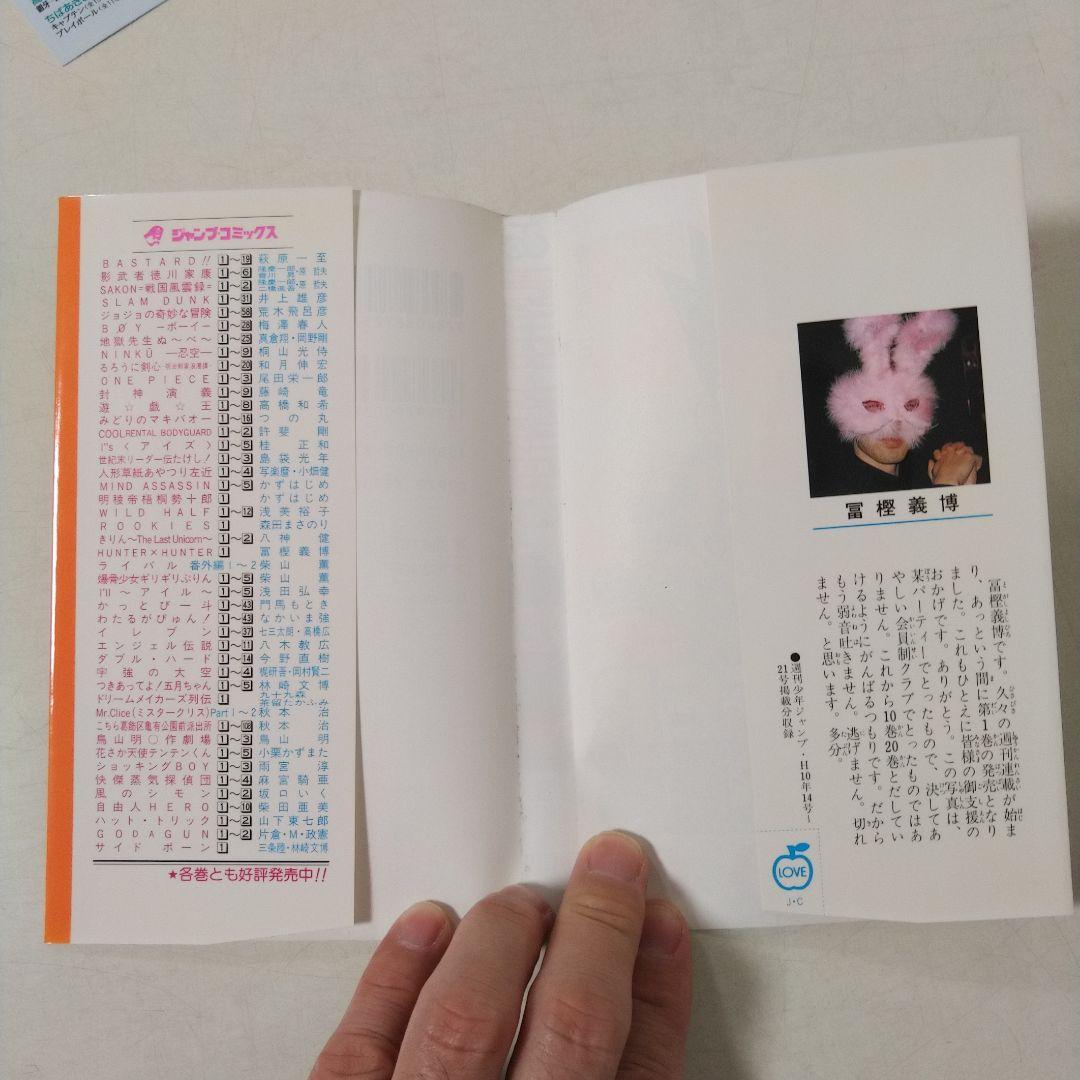 ちばあき
キャプテン(全
プレイボール(全11
ジャンプ・コミックス
BASTARD!! 1〜19 萩原一至
影武者徳川家康 1〜6 隆慶一郎・原哲夫
SAKON=戦国風雲録= 1〜2 隆慶一郎・原哲夫
SLAM DUNK 1〜31 井上雄彦
ジョジョの奇妙な冒険 1〜58 荒木飛呂彦
BØY −ボーイ− 1〜28 梅澤春人
地獄先生ぬ〜べ〜 1〜25 真倉翔・岡野剛
NINKŪ −忍空− 1〜9 桐山光侍
るろうに剣心-明治剣客浪漫譚- 1〜20 和月伸宏
ONE PIECE 1〜3 尾田栄一郎
封神演義 1〜9 藤崎竜
遊☆戯☆王 1〜8 高橋和希
みどりのマキバオー 1〜16 つの丸
COOLRENTAL BODYGUARD 1〜2 許斐剛
I"s〈アイズ〉 1〜5 桂正和
世紀末リーダー伝たけし! 1〜3 島袋光年
人形草紙あやつり左近 1〜4 写楽麿・小畑健
MIND ASSASSIN 1〜5 かずはじめ
明稜帝梧桐勢十郎 1 かずはじめ
WILD HALF 1〜12 浅美裕子
ROOKIES 1 森田まさのり
きりん〜The Last Unicorn〜 1〜2 八神健
HUNTER×HUNTER 1 冨樫義博
ライバル 番外編1〜2 柴山薫
爆骨少女ギリギリぷりん 1〜5 柴山薫
I'll 〜アイル〜 1〜5 浅田弘幸
かっとび一斗 1〜43 門馬もとき
わたるがぴゅん! 1〜43 なかいま強
イレブン 1〜37 七三太朗・高橋広
エンジェル伝説 1〜11 八木教広
ダブル・ハード 1〜14 今野直樹
宇強の大空 1〜4 梶研吾・岡村賢二
つきあってよ!五月ちゃん 1〜5 林崎文博
ドリームメイカーズ列伝 1 九十九森 茶留たかふみ
Mr.Clice(ミスタークリス)Part1〜2 秋本治
こちら葛飾区亀有公園前派出所 1〜108 秋本治
鳥山明〇作劇場 1〜3 鳥山明
花さか天使テンテンくん 1〜5 小栗かずまた
ショッキングBOY 1〜3 雨宮淳
快傑蒸気探偵団 1〜4 麻宮騎亜
風のシモン 1〜2 坂口いく
自由人HERO 1〜10 柴田亜美
ハット・トリック 1〜2 山下東七郎
GODAGUN 1〜2 片倉・M・政憲
サイドボーン 1 三条陸・林崎文博
★各巻とも好評発売中!!
冨樫義博
冨樫義博です。久々の週刊連載が始ま
り、あっという間に第1巻の発売となり
ました。これもひとえに皆様の御支援の
おかげです。ありがとう。この写真は、
某パーティーでとったもので、決してあ
やしい会員制クラブでとったものではあ
りません。これから10巻20巻とだしてい
けるようにがんばるつもりです。だから
もう弱音吐きません。逃げません。切れ
ません。と思います。多分。
●週刊少年ジャンプ・H10年14号〜
21号掲載分収録
LOVE
J・C